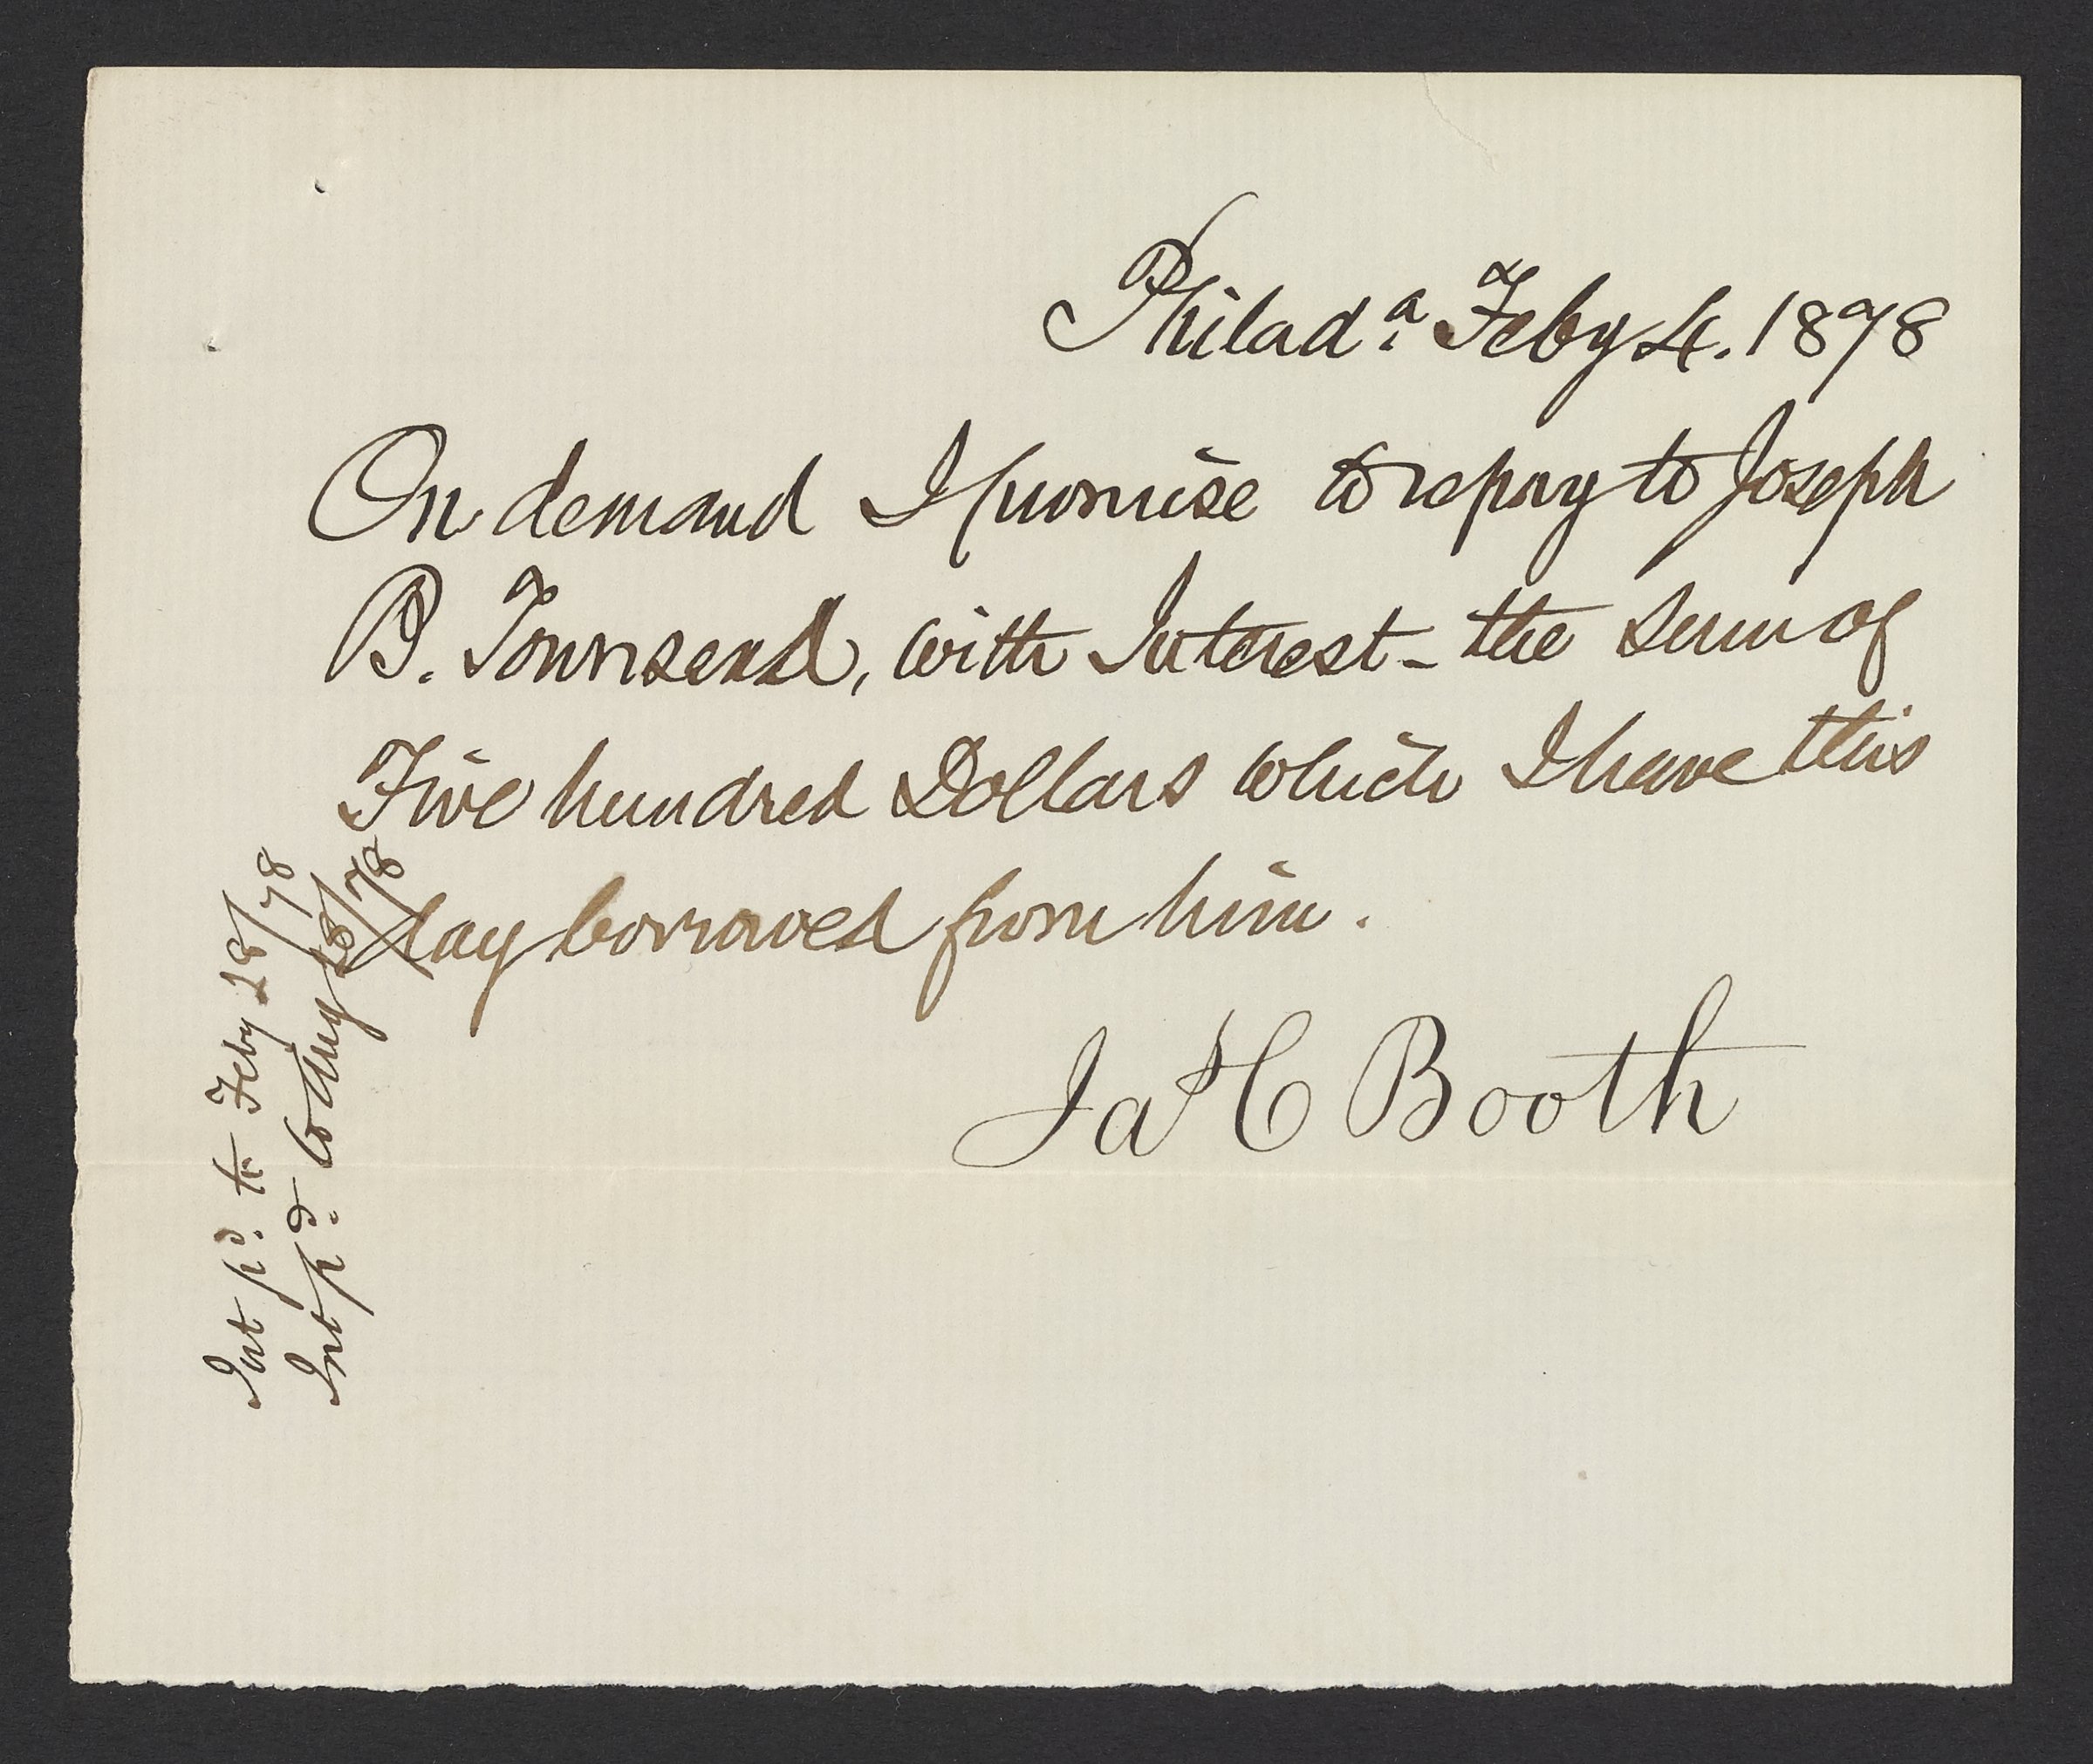 Philad.ᵃ Feby 4. 1878
On demand I promise to repay to Joseph
B. Townsend, with Interest - the sum of
Five hundred Dollars which I have this
day borrowed from him.
Ja H C Booth
Int pᵈ. to Feby 28/78
Int pᵈ. to Aug 28/78